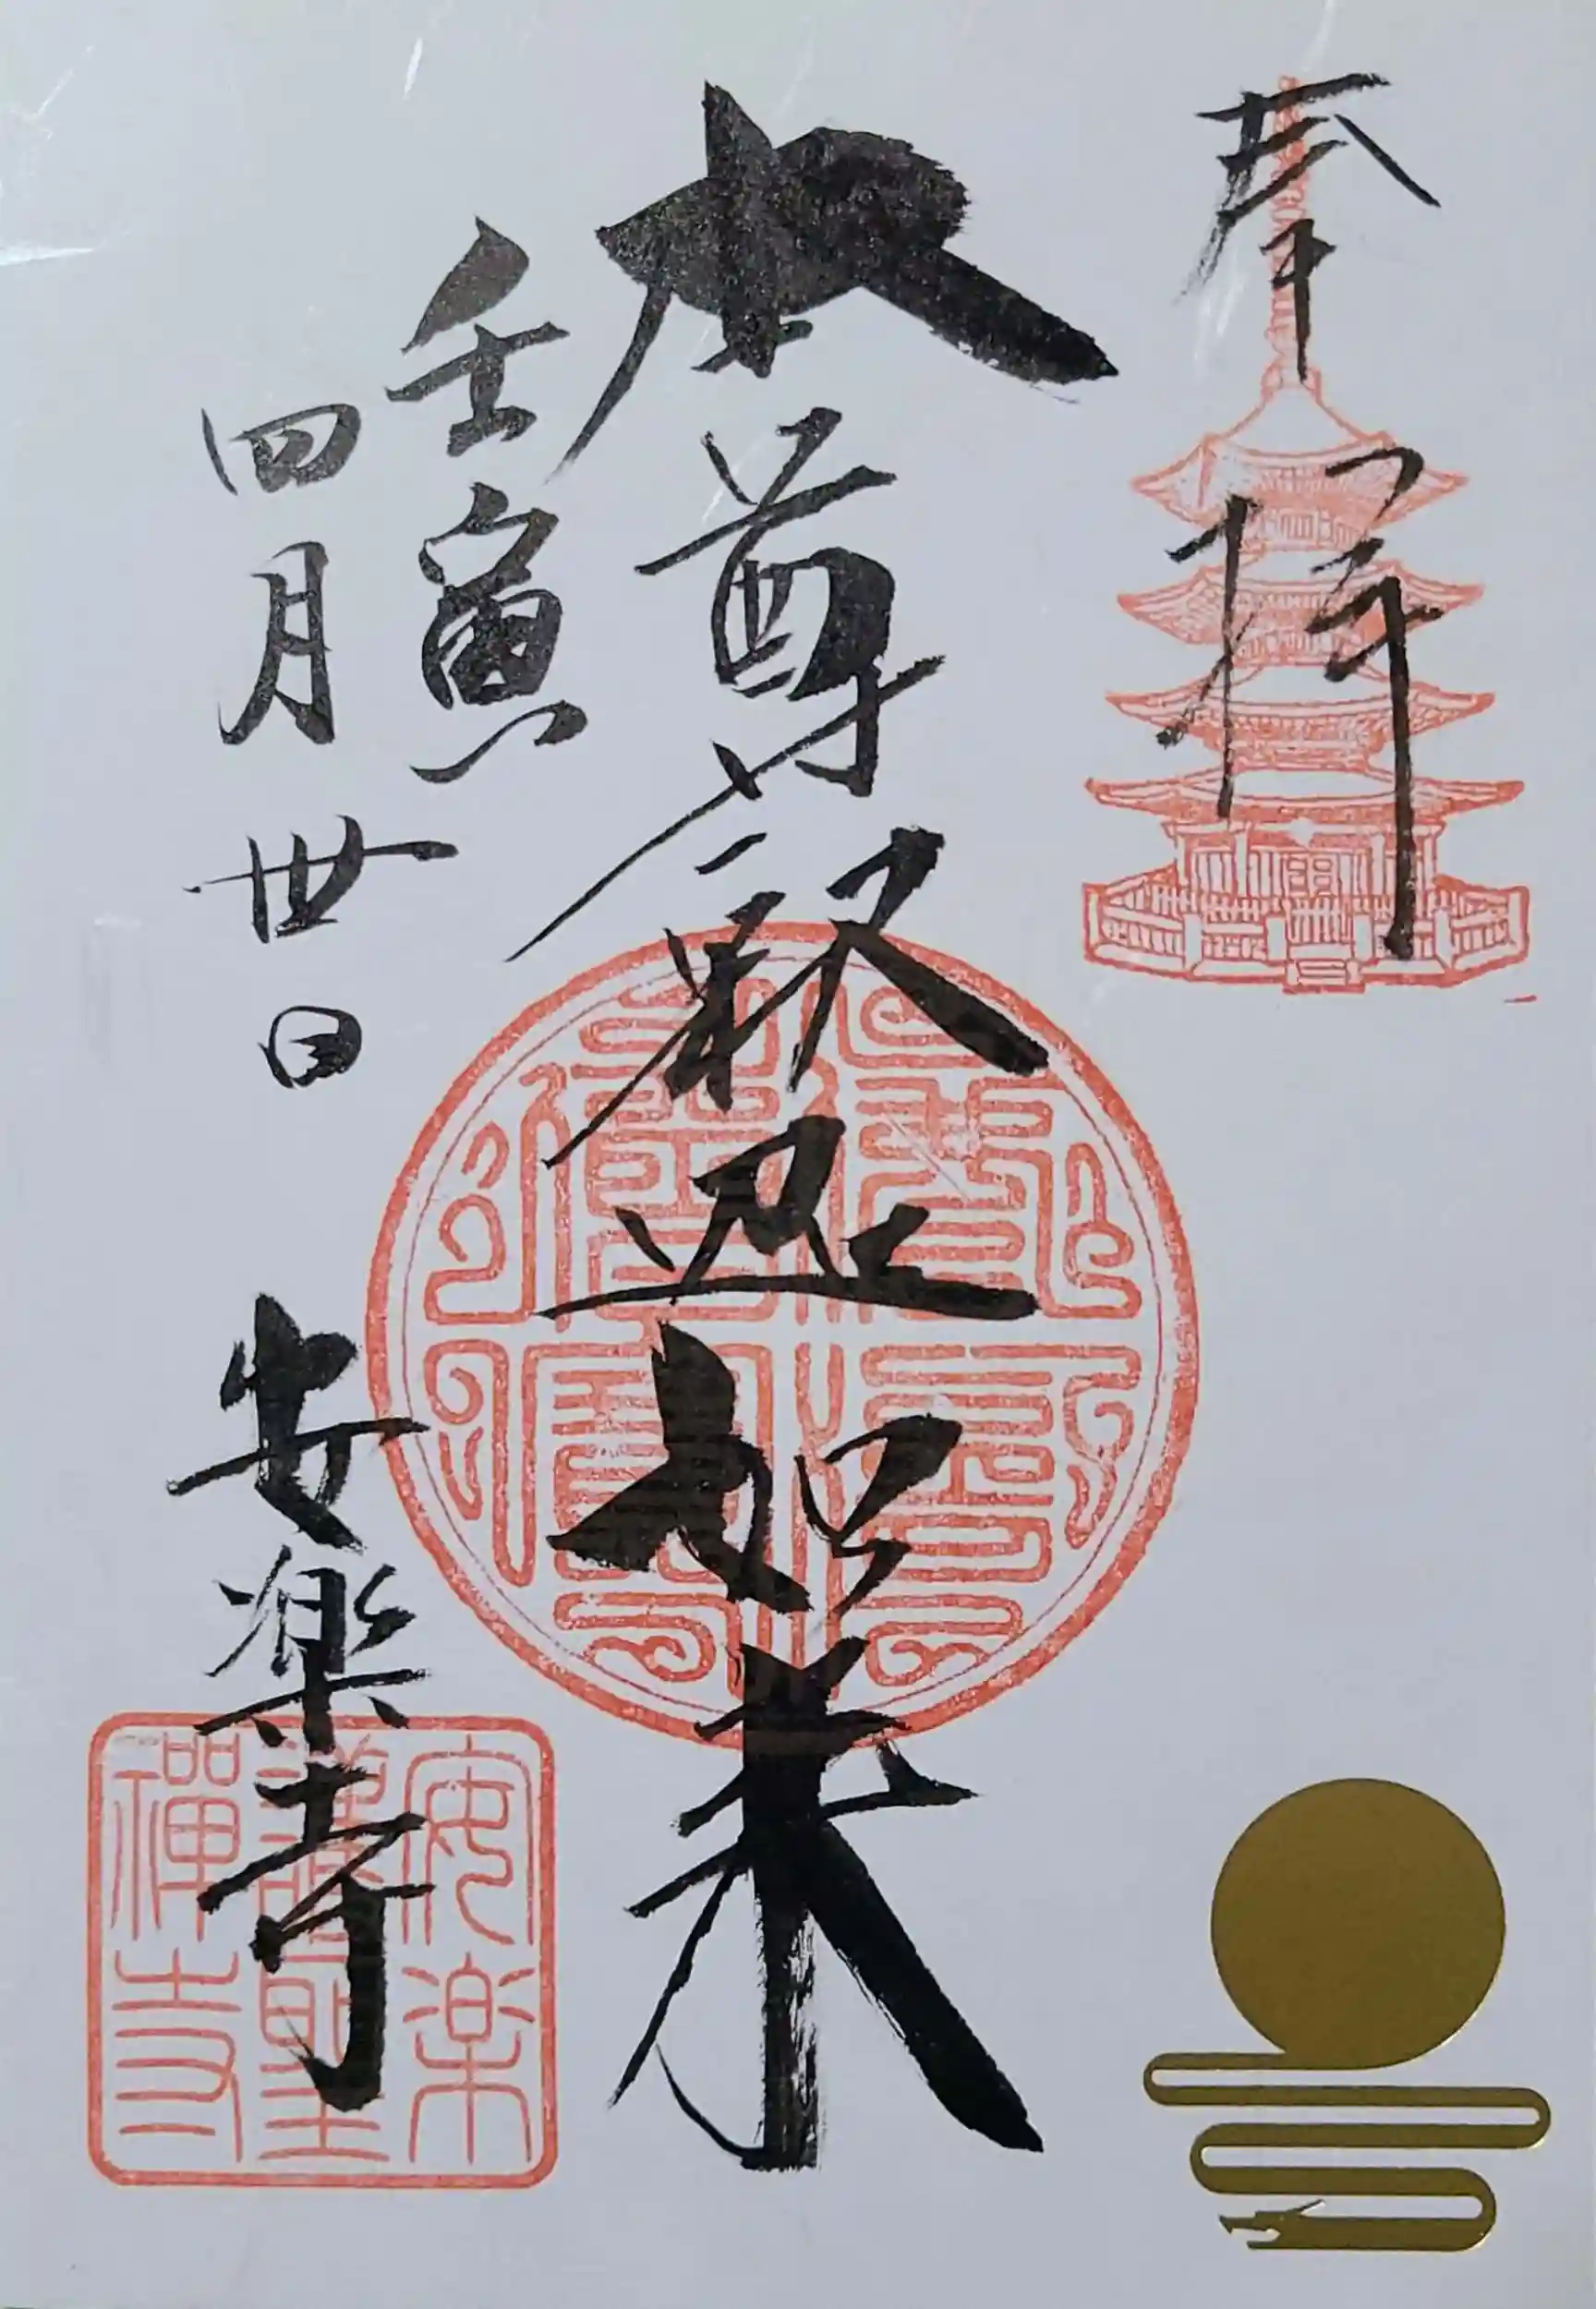 奉拝
本尊釈迦如来
壬寅
四月卅日
安楽寺
安楽
護聖
禅寺